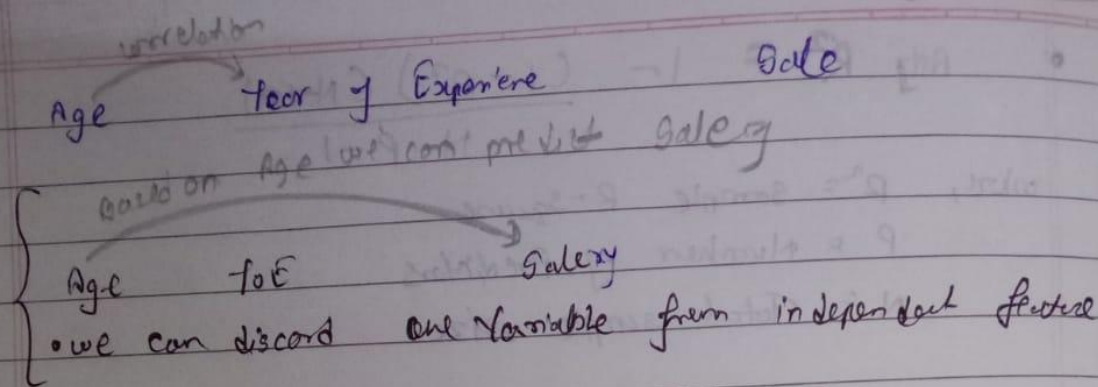 correlation
Age Year of Experiene Sale
based on Age we can predict Salery
Age YoE Salery
• we can discord one Variable from independent feature